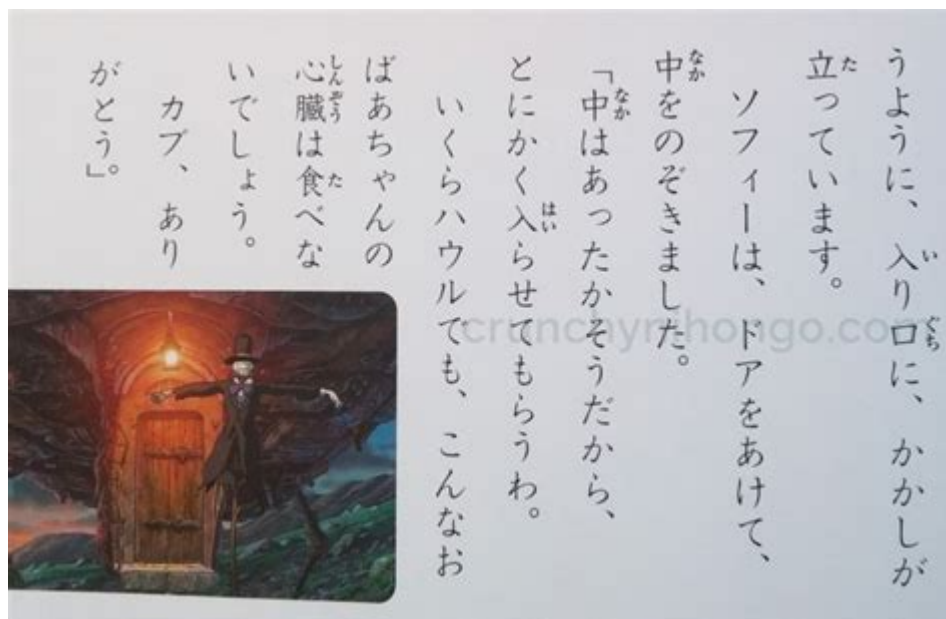 うように、入り口に、かかしが
立っています。
ソフィーは、ドアをあけて、
中をのぞきました。
「中はあったかそうだから、
とにかく入らせてもらうわ。
いくらハウルでも、こんなお
ばあちゃんの
心臓は食べな
いでしょう。
カブ、あり
がとう」。
crunchynihongo.com